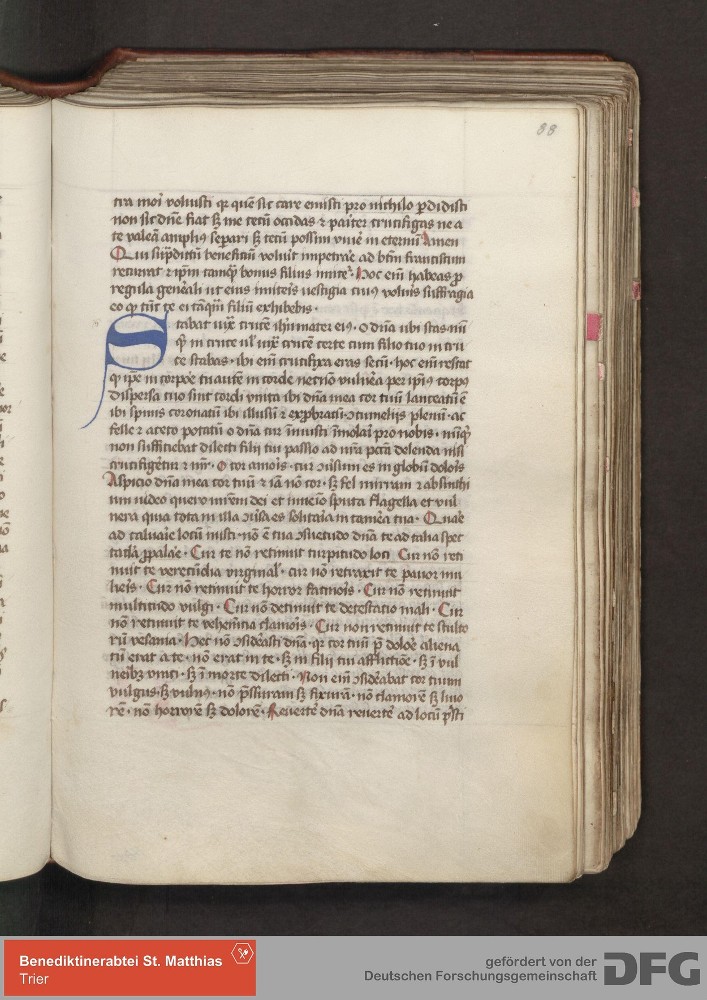 88
tra mori voluisti qr quē sic care emisti pro nichilo ꝑdidisti
non sic dn̄e fiat sꝫ me tecū occidas ⁊ pariter crucifigas ne a
te valeā amplius separi sꝫ tecū possim viuere in eternū Amen
Qui sup̄dictū beneficiū voluit impetrare ad btm̄ franciscum
recurrat ⁊ ip̄m tamq̄ bonus filius imitet᷑ · Hoc em̄ habeas ꝓ
regula generali ut eius imiteris vestigia cuius volueris suffragia
eo qꝫ tūc te ei tāq̄m filiū exhibebis ·
Stabat iuxᷓ crucē ih̄u mater eius · O dn̄a ubi stas nūc
qͥd in cruce ul' iuxᷓ crucē certe cum filio tuo in cru
ce stabas · ibi em̄ crucifixa eras secū · hoc em̄ restat
qꝫ ip̄e in corpore tu autē in corde nec nō vulnera per ip̄ius corpus
dispersa tuo sunt cordi vnita ibi dn̄a mea cor tuū lanceatū ē
ibi spinis coronatū ibi illusū ⁊ exprobratū ꝯtumeliis plenū · ac
felle ⁊ aceto potatū o dn̄a cur īuisti īmolari pro nobis · nūqͥd
non sufficiebat dilecti filii tui passio ad nr̄a pctā delenda nisi
crucifigeretur ⁊ mr̄ · O cor amoris · cur ꝯuersum es in globū doloris
Aspicio dn̄a mea cor tuū ⁊ iā nō cor · sꝫ fel mirram ⁊ absinthi
um video quero mr̄em dei et inuenio sputa flagella et vul
nera quia tota in illa ꝯuersa es solitaria in camera tua · Quare
ad caluarie locū iuisti · nō ē tua ꝯsuetudo dn̄a te ad talia spec
tacl'a ꝓpalare · Cur te nō retinuit turpitudo loci Cur nō reti
nuit te verecūdia virginal' · cur nō retraxit te pauor mu
lieris · Cur nō retinuit te horror facinoris · Cur nō retinuit
multitudo vulgi · Cur nō detinuit te detestatio mali · Cur
nō retinuit te vehemētia clamoris · Cur non retinuit te stulto
rū vesania · Hec nō ꝯsiderasti dn̄a · qr cor tuū p̄ dolore aliena
tū erat a te · nō erat in te · sꝫ in filii tui afflictiōe · sꝫ ī vul
neribꝫ vnici · sꝫ ī morte dilecti · Non em̄ ꝯsiderabat cor tuum
vulgus · sꝫ vulnus · nō p̄ssuram sꝫ fixurā · nō clamorē sꝫ liuo
rē · nō horrorē sꝫ dolorē · Reuertere dn̄a reuertere ad locū pͥsti
Benediktinerabtei St. Matthias
Trier
gefördert von der
Deutschen Forschungsgemeinschaft
DFG